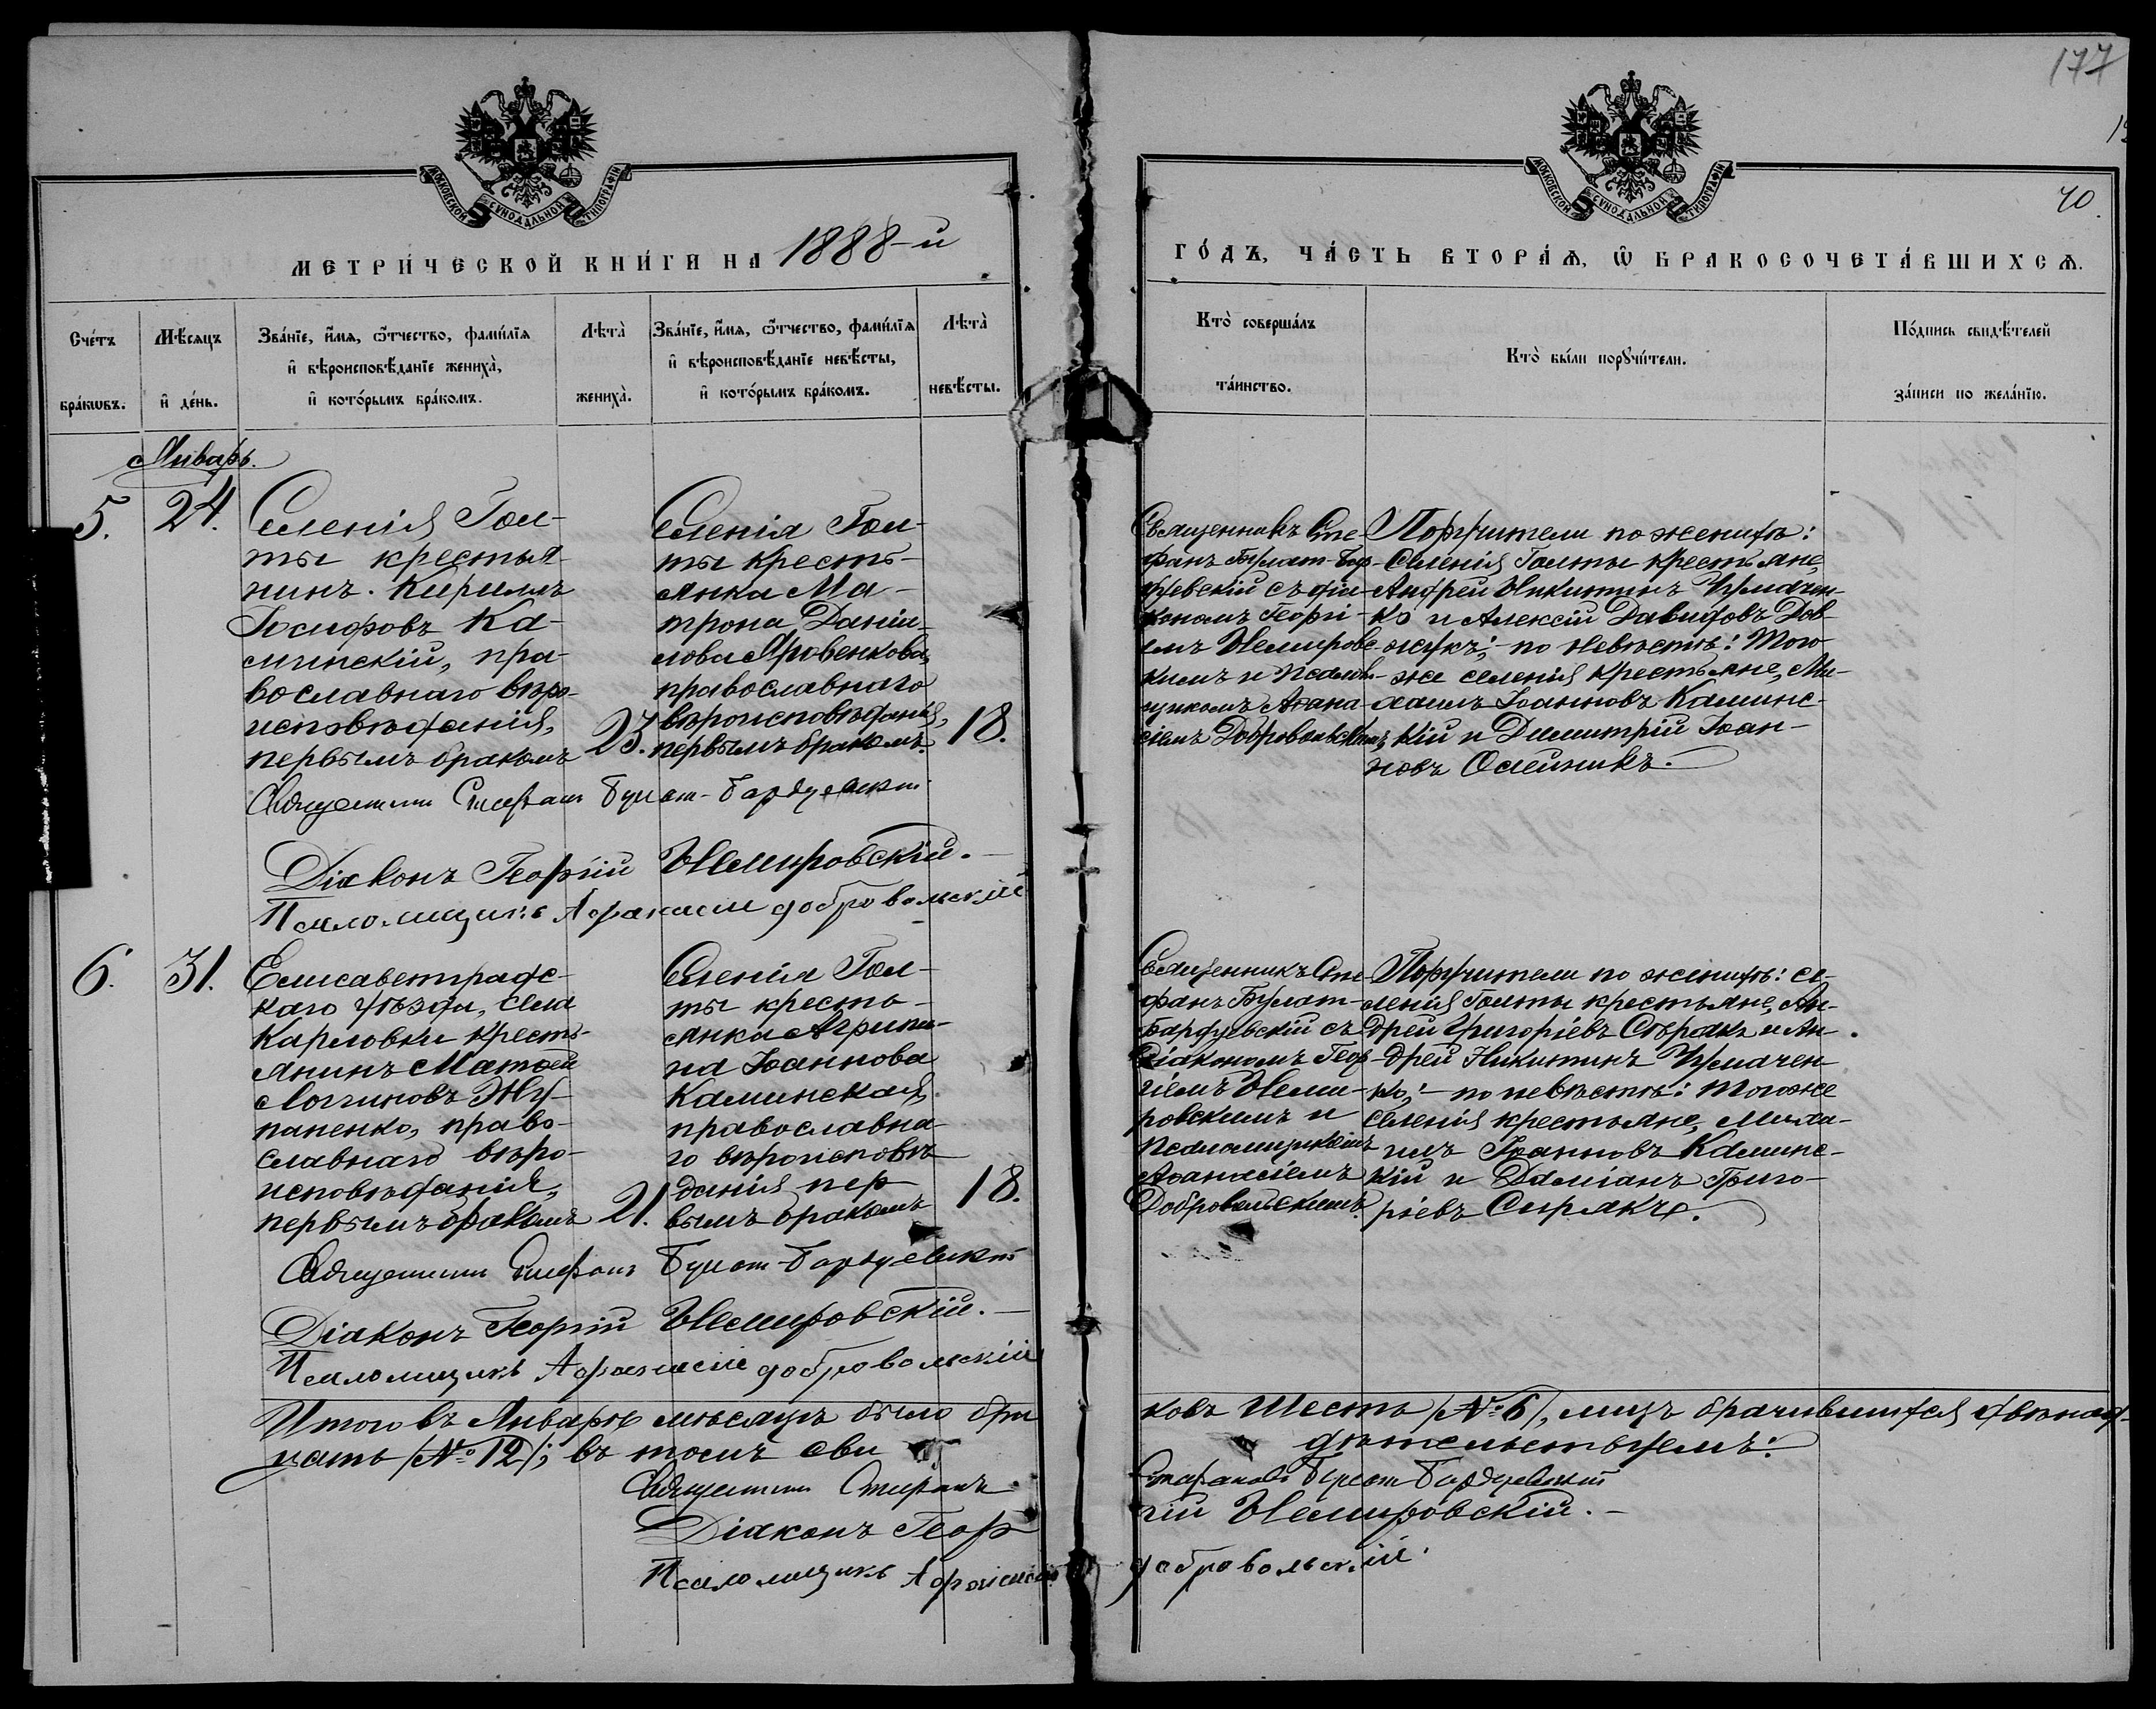 177
40.
МОСКОВСКОЙ СѴНОДАЛЬНОЙ ТИПОГРАФІИ
МОСКОВСКОЙ СѴНОДАЛЬНОЙ ТИПОГРАФІИ
МЕТРИ́ЧЕСКОЙ КНИ́ГИ НА 1888-й
ГО́ДЪ, ЧА́СТЬ ВТОРА́Ѧ, Ѽ БРАКОСОЧЕТА́ВШИХСѦ.
Сче́тъ бра́кѡвъ.
Мѣ́сяцъ и҆ де́нь.
Зва́нїе, и҆́мѧ, ѻ҆́тчество, фами́лїѧ и҆ вѣроисповѣ́данїе жениха̀, и҆ кото́рымъ бра́комъ.
Лѣта̀ жениха̀.
Зва́нїе, и҆́мѧ, ѻ҆́тчество, фами́лїѧ и҆ вѣроисповѣ́данїе невѣ́сты, и҆ кото́рымъ бра́комъ.
Лѣта̀ невѣ́сты.
Кто̀ соверша́лъ та́инство.
Кто̀ бы́ли порꙋчи́тели.
По́дпись свидѣ́телей за́писи по жела́нїю.
Январь.
5.
24.
Селенія Гол-
ты крестья-
нинъ. Кириллъ
Іосифовъ Ка-
минскій, пра-
вославнаго вѣро-
исповѣданія,
первымъ бракомъ
23.
Селенія Гол-
ты кресть-
янка Ма-
трона Даніи-
лова Яровенкова,
православнаго
вѣроисповѣданія,
первымъ бракомъ.
18.
Священникъ Сте-
фанъ Булат-Бар-
дуевскій съ діа-
кономъ Георгі-
емъ Немировс-
кимъ и псалом-
щикомъ Аѳана-
сіемъ Добровольскимъ
Поручители по женихѣ:
Селенія Голты крестьяне,
Андрей Никитинъ Чумачен-
ко и Алексій Давидовъ Дов-
жукъ; - по невѣстѣ: того
же селенія крестьяне, Ми-
хаилъ Іоанновъ Каминс-
кій и Димитрій Іоан-
новъ Олейникъ.
Священникъ Стефанъ Булат-Бардуевскій
Діаконъ Георгій Немировскій.
Псаломщикъ Афанасій Добровольскій
6.
31.
Елисаветградс-
каго уѣзда, села
Карловки кресть-
янинъ Матѳей
Логгиновъ Жу-
паненко, право-
славнаго вѣро-
исповѣданія,
первымъ бракомъ
21.
Селенія Гол-
ты кресть-
янка Агрипи-
на Іоаннова
Каминская,
православна-
го вѣроисповѣ-
данія пер-
вымъ бракомъ
18.
Священникъ Сте-
фанъ Булат-
Бардуевскій съ
Діакономъ Геор-
гіемъ Неми-
ровскимъ и
Псаломщикомъ
Аѳанасіемъ
Добровольскимъ.
Поручители по женихѣ: се-
ленія Голты крестьяне, Ан-
дрей Григоріевъ Сѣракъ и Ан-
дрей Никитинъ Чумачен-
ко; - по невѣстѣ: того же
селенія крестьяне, Миха-
илъ Іоанновъ Каминс-
кій и Даміанъ Григо-
ріевъ Сиракъ.
Священникъ Стефанъ Булат-Бардуевскій
Діаконъ Георгій Немировскій.
Псаломщикъ Афанасій Добровольскій
Итого въ Январѣ мѣсяцѣ было бра
ковъ Шесть /№ 6/, лицъ брачившихся двѣнад-
цать /№ 12/; въ томъ сви
дѣтельствуемъ:
Священникъ Стефанъ
Стефановъ Булат-Бардуевскій
Діаконъ Геор
гій Немировскій.
Псаломщикъ Афанасій
Добровольскій